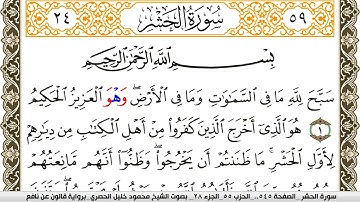 ٥٩ سُورَةُ الْحَشْرِ ٢٤
بِسْمِ اللَّهِ الرَّحْمَٰنِ الرَّحِيمِ
سَبَّحَ لِلَّهِ مَا فِي السَّمَٰوَٰتِ وَمَا فِي الْأَرْضِ وَهْوَ الْعَزِيزُ الْحَكِيمُ
١ هُوَ الَّذِي أَخْرَجَ الَّذِينَ كَفَرُوا مِنْ أَهْلِ الْكِتَٰبِ مِن دِيَٰرِهِمْ
لِأَوَّلِ الْحَشْرِ مَا ظَنَنتُمْ أَن يَخْرُجُوا وَظَنُّوا أَنَّهُم مَّانِعَتُهُمْ
سورة الحشر _ الصفحة ٥٤٥ .. الحزب ٥٥ .الجزء ٢٨ _ بصوت الشيخ محمود خليل الحصري. برواية قالون عن نافع